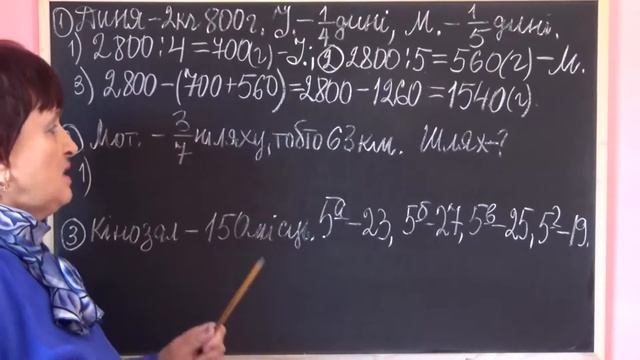 ① Диня – 2кг 800г. І. – 1/4 дині, М. – 1/5 дині.
1) 2800 : 4 = 700(г) – І.; ② 2800 : 5 = 560(г) – М.
3) 2800 – (700 + 560) = 2800 – 1260 = 1540(г).
Мот. – 3/7 шляху, тобто 63 км. Шлях – ?
1)
③ Кінозал – 150 місць. 5ᵃ – 23, 5ᵇ – 27, 5ᵛ – 25, 5ᵍ – 19.